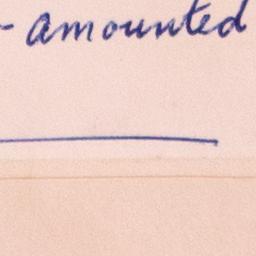 - amounted